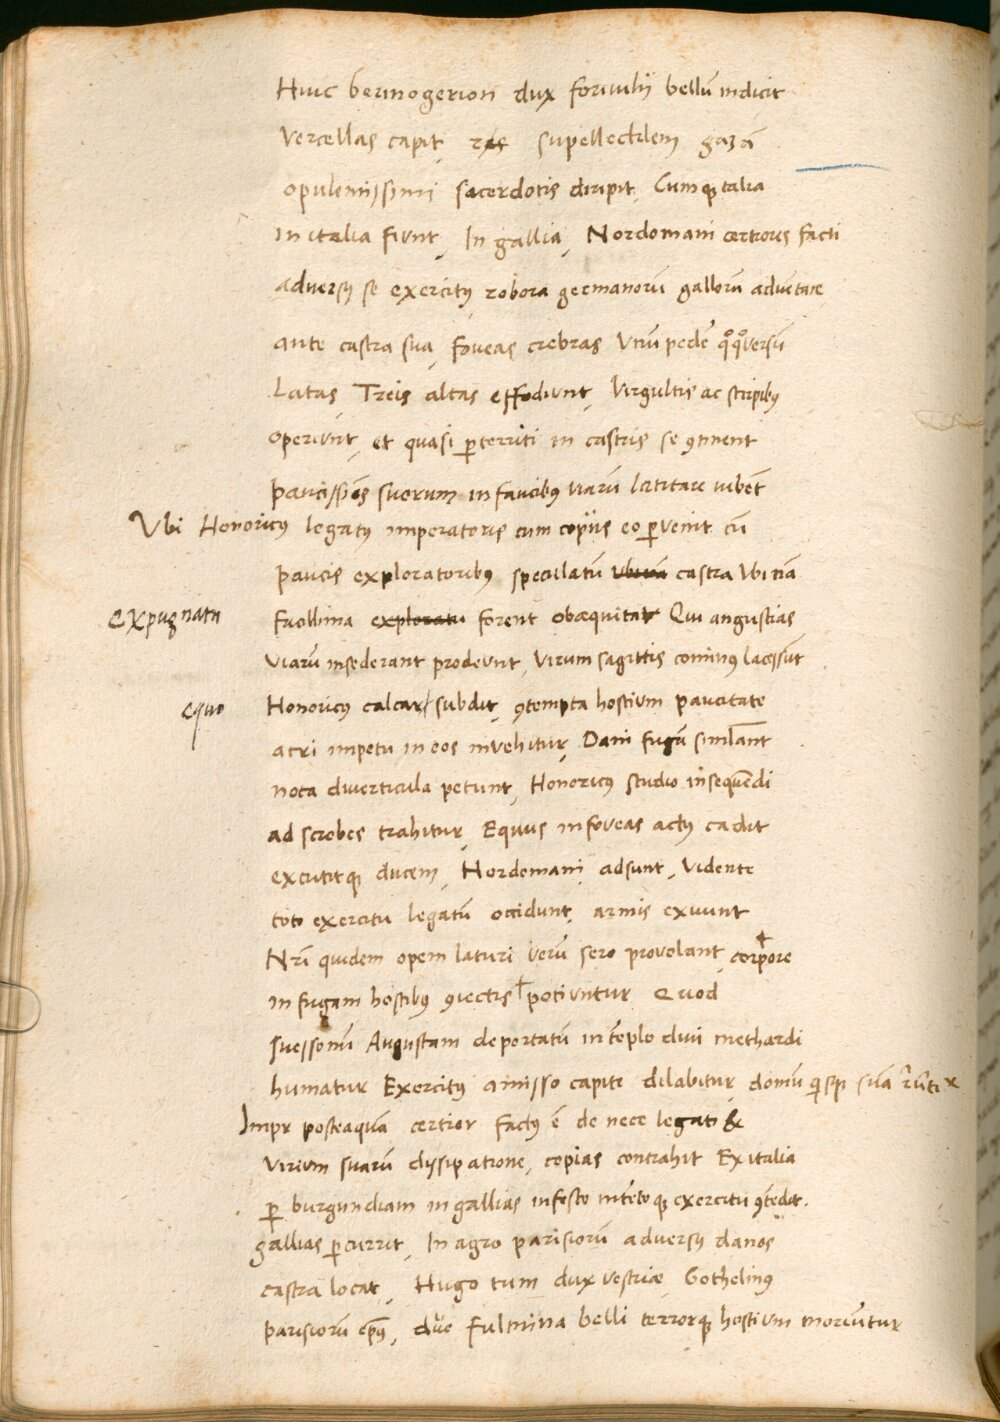 Huic beringerion dux foriulii bellū indicit
vercellas capit, supellectilem gazā
opulentissimi sacerdotis diripit, Cumq; talia
in italia fiunt, In gallia, Nordomani certiores facti
adversꝰ se exercitꝰ robora germanorū gallorū adventare
ante castra sua, foveas crebras Unū pedē q̊q̊versū
Latas Treis altas effodiunt, virgultis ac stipibꝰ
operiunt, et quasi ꝑterriti in castris se ꝯtinent
paucissimos suorum in faucibus viarū latitare iubēt
Ubi Honoricꝰ legatꝰ imperatoris cum copiis eo ꝑvenit cū
paucis exploratoribꝰ speculatū castra ubi nā
expugnatu facillima exploratu forent obæquitat Qui angustias
viarū insederant prodeunt, virum sagittis cominꝰ lacessūt
equo Honoricꝰ calcar subdit, ꝯtempta hostium paucitate
acri impetu in eos invehitur, Dani fugā simulant
nota diverticula petunt, Honoricꝰ studio insequēdi
ad scrobes trahitur, Equus in foveas actꝰ cadit
excutitq; ducem, Nordomani adsunt, vidente
toto exercitu legatū occidunt, armis exuunt
Nr̄i quidem opem laturi verū sero provolant, corpore
in fugam hostibꝰ ꝯiectis potiuntur Quod
suessonū Augustam deportatū in tēplo divi methardi
humatur Exercitꝰ amisso capite dilabitur, domū qisq; suā
Imꝑr posteaquā certior factꝰ ē de nece legati &
virium suarū dissipatione, copias contrahit Ex italia
ꝑ burgundiam in gallias infesto intētoq; exercitu ꝯtēdit.
gallias ꝑcurrit, In agro parisiorū adversꝰ danos
castra locat, Hugo tum dux vestriæ Gothelinꝰ
parisiorū ep̄us, duo fulmina belli terrorq; hostium moriūtur